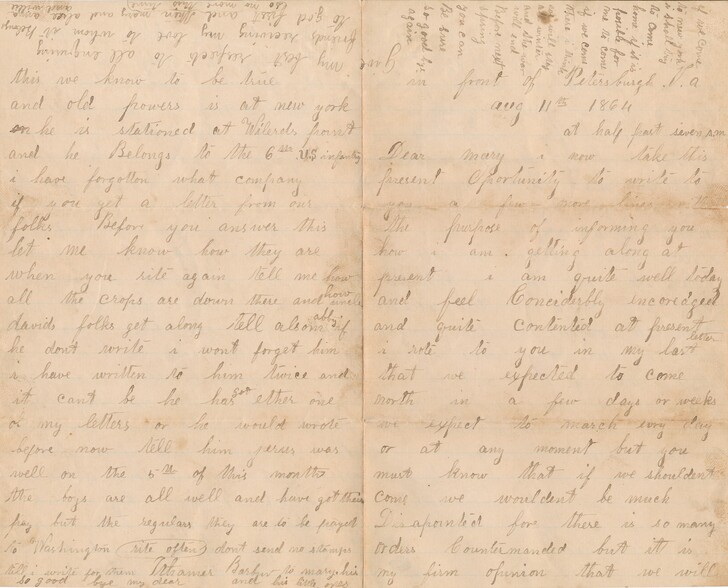 in front of Petersburgh Va
aug 11th 1864
at half past seven, am
Dear mary i now take this
present Oportunity to write to
you a few more lines with
the purpose of informing you
how i am getting along at
present i am quite well today
and feel Conciderbly incoredged
and quite contented at present
i rote to you in my last letter
that we expected to come
north in a few days or weeks
we expect to march evry day
or at any moment but you
must know that if we shouldent
come we wouldent be much
Disapointed fore there is so many
orders Countermanded but it is
my firm opinion that we will
if we come
to new york
i shall try
to come
home if it is
posible for
me to come
if we come
there i think
we will stay
a while
and she war
will end
before next
spring
you can
Be sure
so good by
again
this we know to be true
and old powers is at new york
he is stationed at Wilerds point
and he Belongs to the 6 US infantry
i have forgotton what company
if you get a letter from our
folks Before you answer this
let me know how they are
when you rite again tell me how
all the crops are down there and how
davids folks get along tell alson if
he dont write i wont forget him
i have written to him twice and
it cant be he has got ether one
of my letters or he would wrote
before now tell him perses was
well on the 5th of this month
the boys are all well and have got there
pay but the regulars they are to be payed
to Washington rite often dont send me stamps
till i write for them
so good bye my dear
and his little ones
my best respects to all enquiring
friends reserving my love to whom it belongs
to god free and then mary and alice